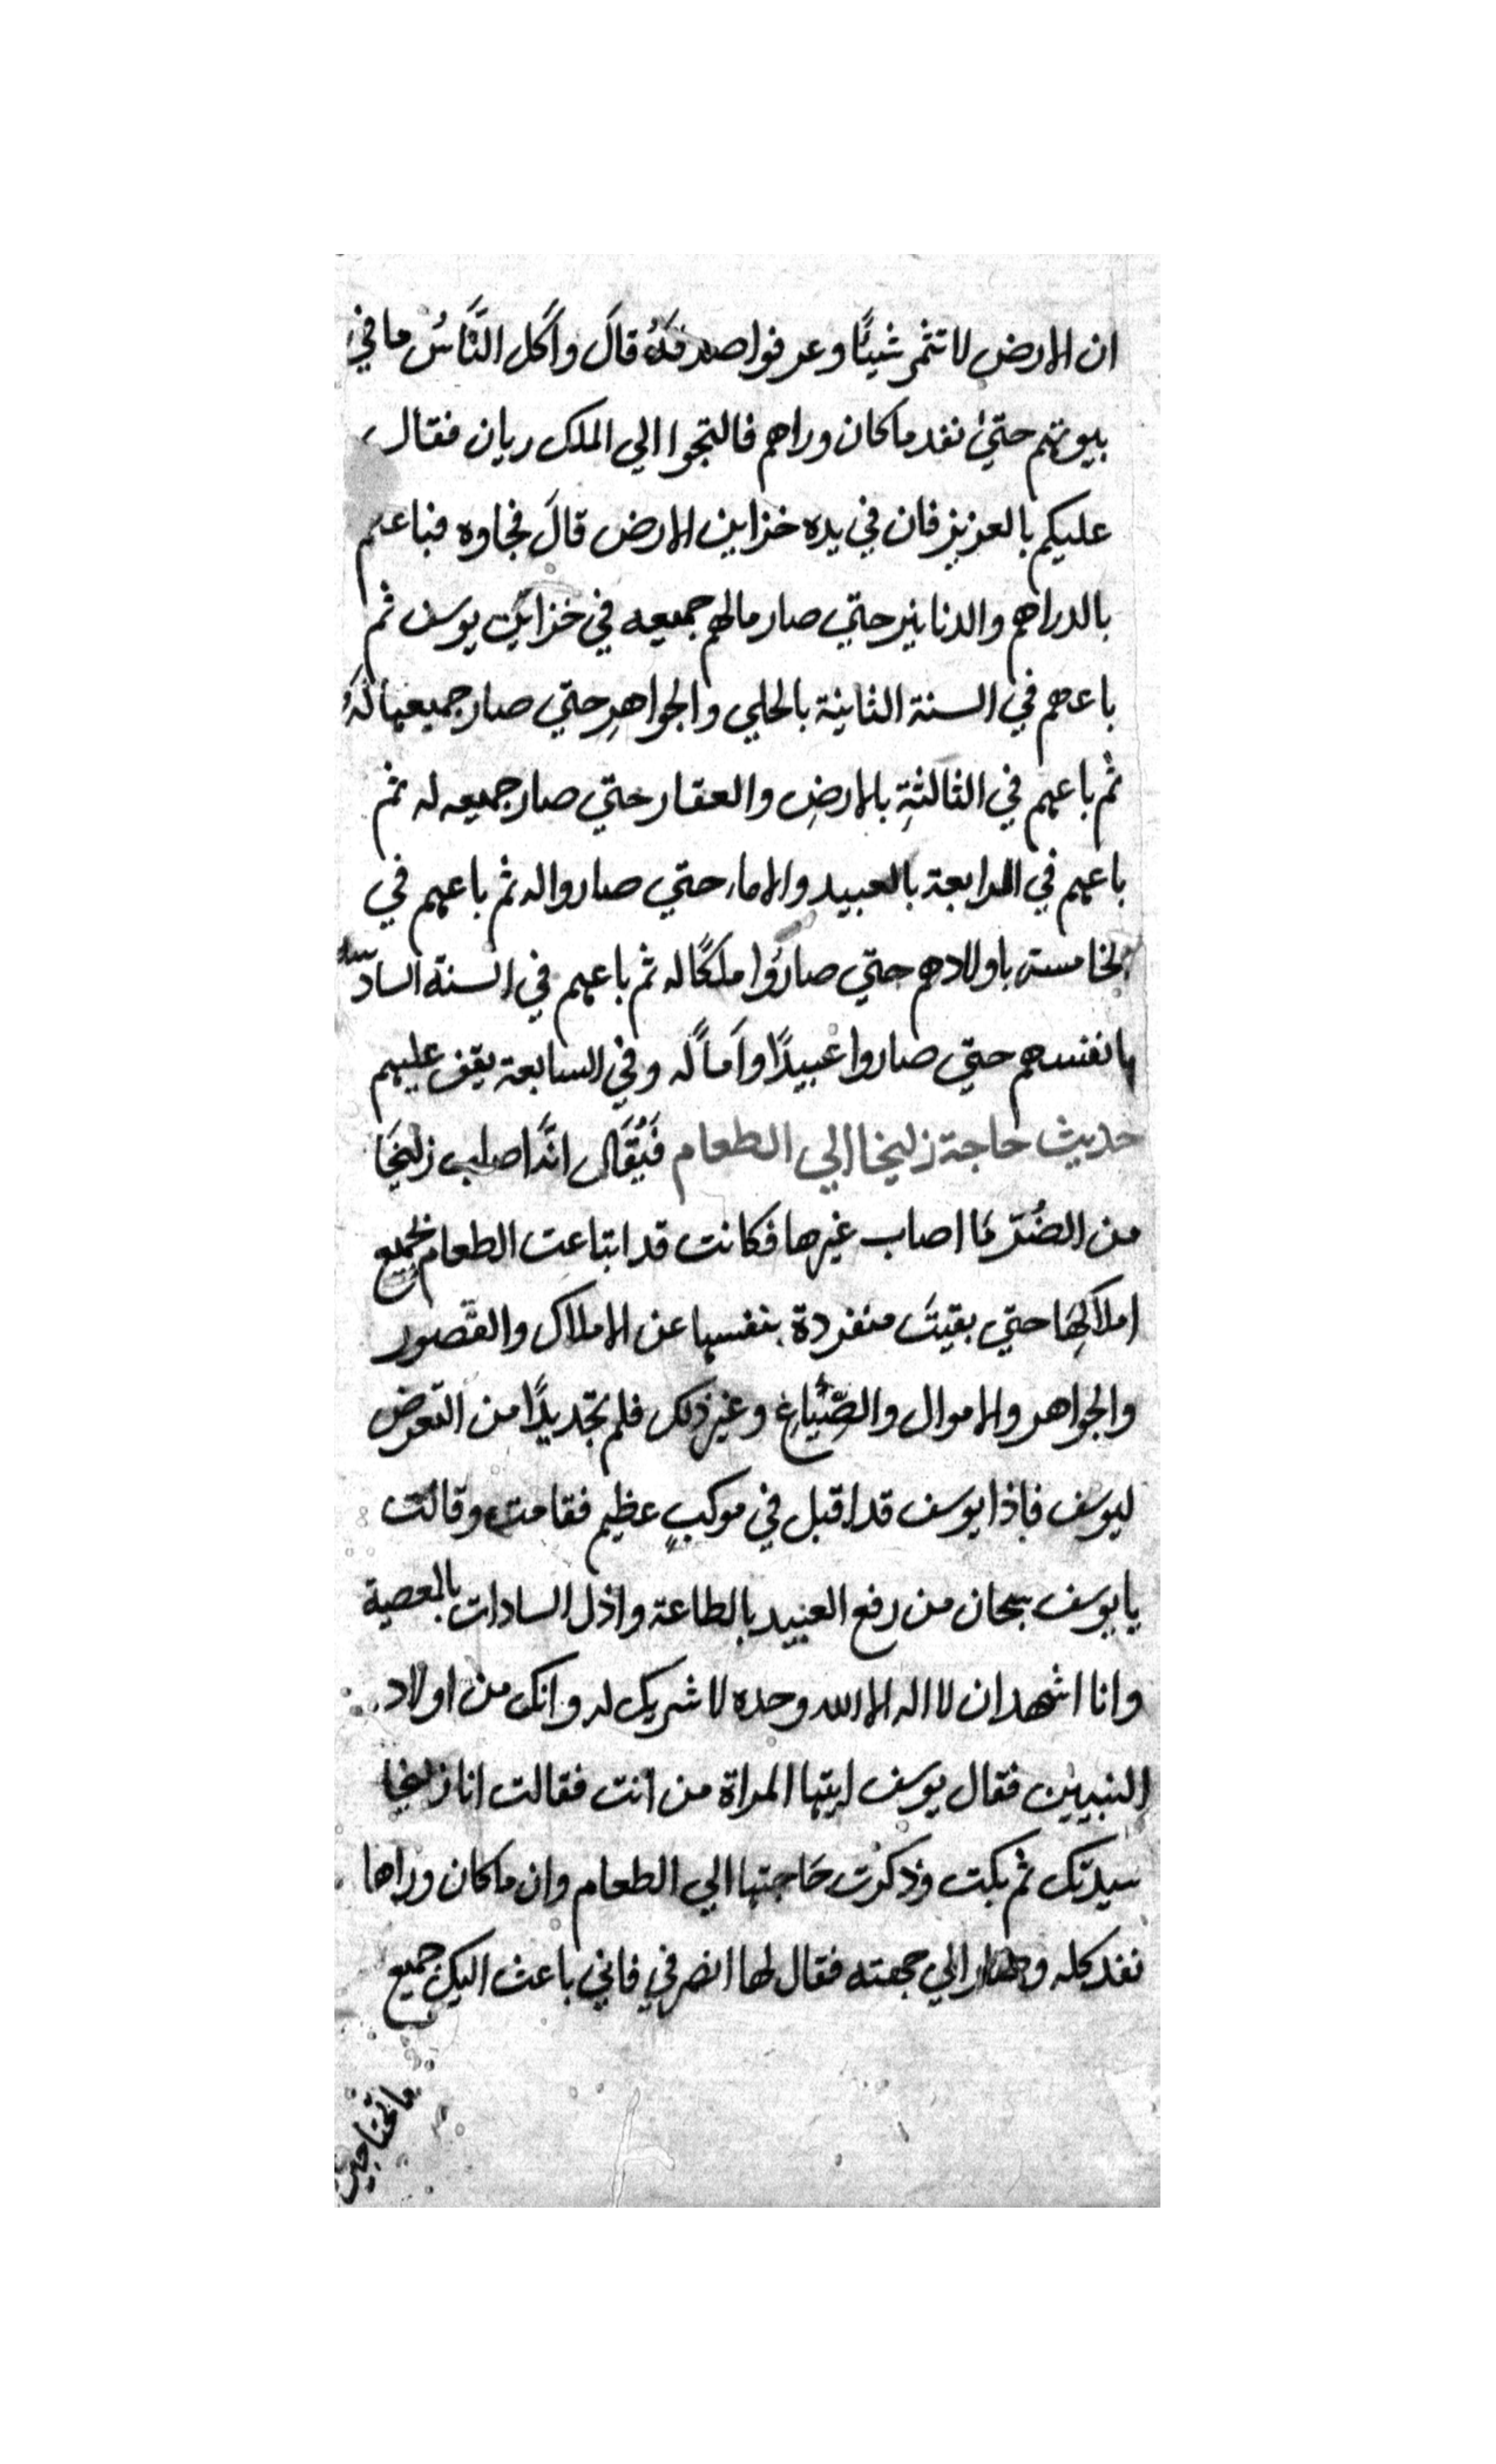 ان الارض لا تثمر شيئًا وعرفوا صدقهُ قالَ واَكل النَّاسُ ما في
بيوتهم حتىٰ نفد ما كان وراهم فالتجوا الي الملك ريان فقال
عليكم بالعزيز فان في يده خزاين الارض قالَ فجاوه فباعهم
بالدراهم والدنانير حتي صار مالهم جميعه في خزاين يوسف ثم
باعهم في السنة الثانية بالحلي والجواهرِ حتي صار جميعها لهُ
ثم باعهم في الثالثةِ بالارضِ والعقار حتي صار جميعه له ثم
باعهم في الرابعة بالعبيد والاماء حتي صاروا له ثم باعهم في
الخامسة باولادهم حتي صارُوا ملكًا له ثم باعهم في السنة السادسة
بانفسهم حتي صاروا عبيدًا واَماً له وفي السابعة يقف عليهم
حديث حاجة زليخا الي الطعام فَيُقَال انَّه اصاب زليخَا
من الضُرّ مَا اصاب غيرها فكانت قد ابتاعت الطعام بجميع
املاكِهَا حتي بقيتَ منفردة بنفسها عن الاملاك والقصور
والجواهر والاموال والضِّيَاعِ وغير ذلك فلم تجد بدًا من التعرض
ليوسف فاذا يوسف قد اقبل في موكبٍ عظيم فقامت وقالت
يا يوسف سبحان من رفع العبيد بالطاعة واذل السادات بالمعصية
وانا اشهد ان لا اله الا الله وحده لا شريك له وانك من اولاد
النبيين فقال يوسف ايتها المراة من انت فقالت انا زليخا
سيدتك ثم بكت وذكرت حَاجتها الي الطعام وان ما كان وراها
نفد كله وصار الي جهته فقال لها انصرفي فاني باعث اليك جميع
ما تحتاجين